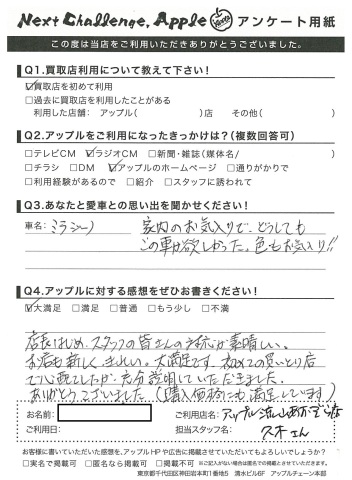 Next Challenge, Apple アンケート用紙
この度は当店をご利用いただきありがとうございました。
Q1.買取店利用について教えて下さい!
☑買取店を初めて利用
□過去に買取店を利用したことがある
利用した店舗:アップル( )店 その他( )
Q2.アップルをご利用になったきっかけは?(複数回答可)
□テレビCM ☑ラジオCM □新聞・雑誌(媒体名/ )
□チラシ □DM ☑アップルのホームページ □通りがかりで
□利用経験があるので □紹介 □スタッフに誘われて
Q3.あなたと愛車との思い出を聞かせください!
車名:ミラジーノ 家内のお気入りで、どうしても
この車が欲しかった。色もお気入り!!
Q4.アップルに対する感想をぜひお書きください!
☑大満足 □満足 □普通 □もう少し □不満
店長はじめ、スタッフの皆さんの対応が素晴しい。
お店も新しく、きれい。大満足です。初めての買いとり店
で心配でしたが、充分説明していただきました。
ありがとうございました。(購入価格にも満足しています)
お名前: ご利用店名:アップル流山おおたかの森店
ご利用日: 担当スタッフ名:久木さん
お客様に書いていただいた感想を、アップルHP や広告に掲載させていただいてもよろしいでしょうか?
□実名で掲載可 □匿名なら掲載可 □掲載不可 ※ご記入がない場合は匿名での掲載とさせていただきます。
東京都千代田区神田岩本町1番地5 清水ビル6F アップルチェーン本部